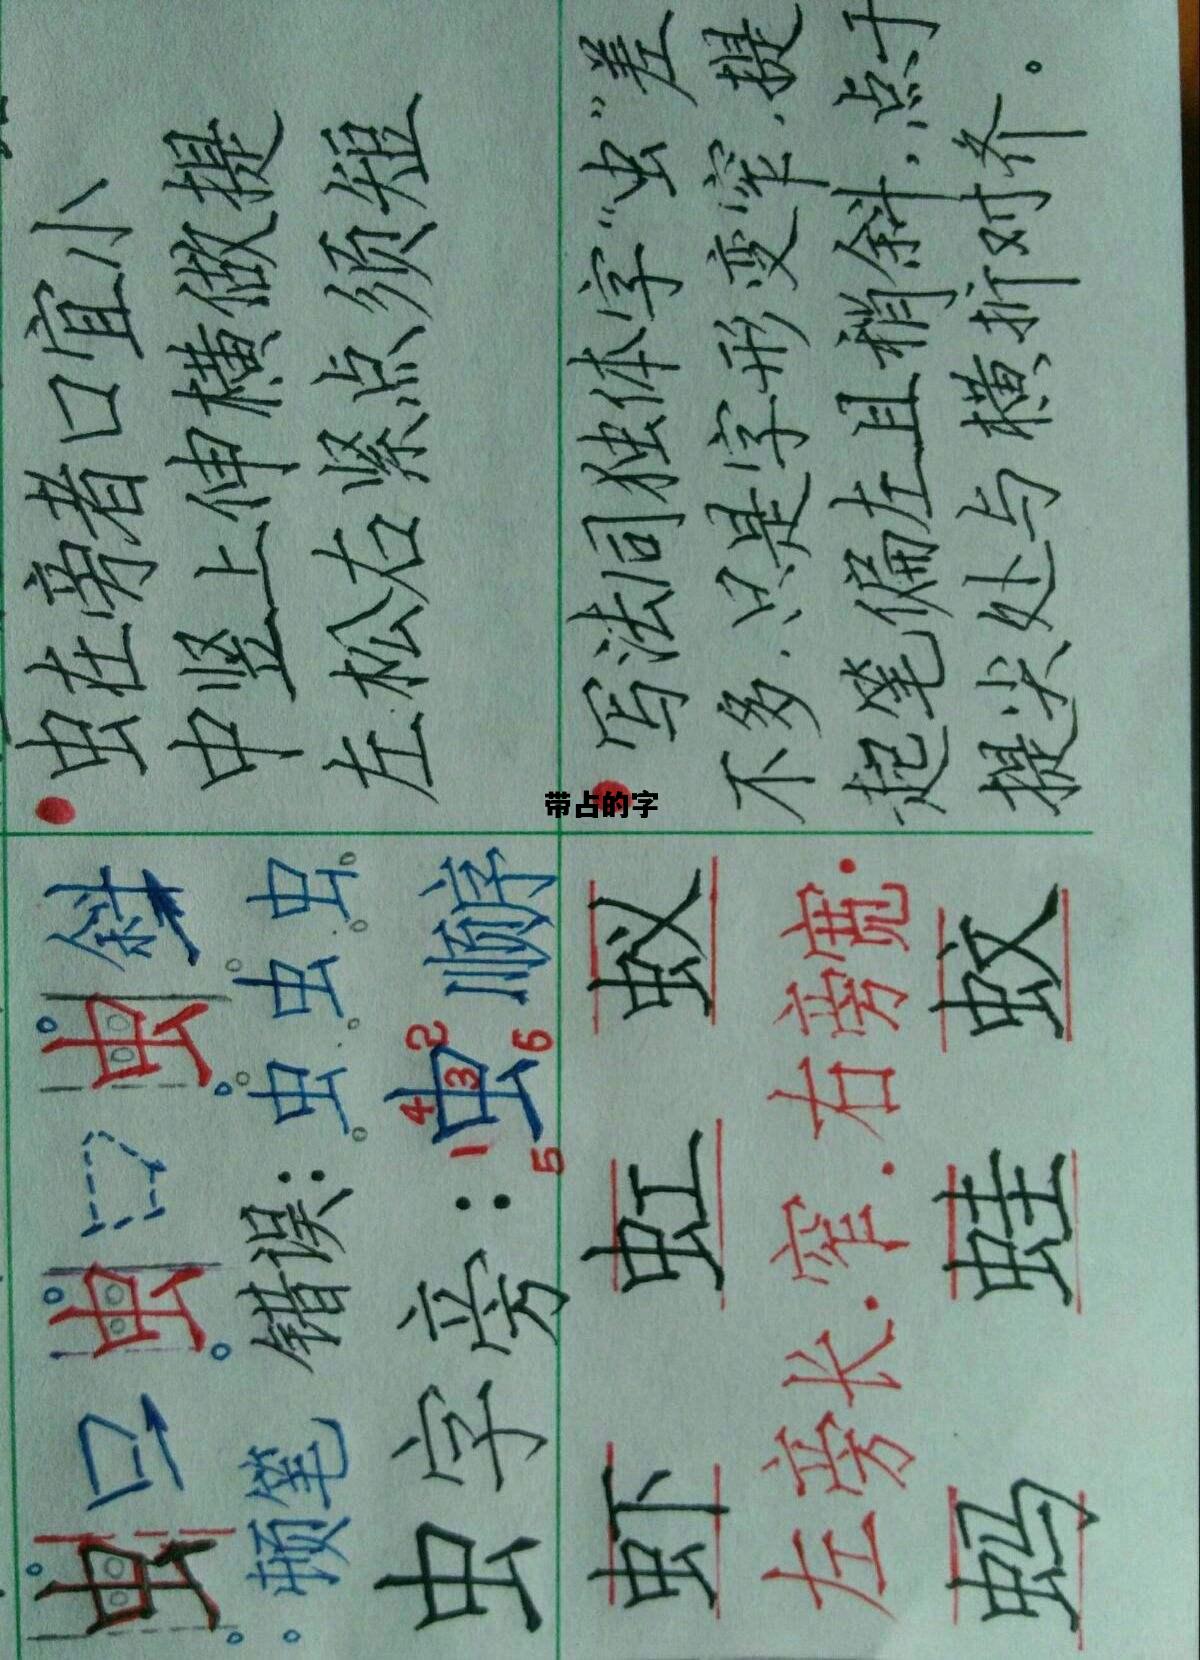 虫 口 虫 虫 斜
顿笔 错误: 虫 虫 虫
虫字旁: 虫 顺序
1 2 3 4 5 6
虫在旁者口宜小
中竖上伸横做提
左松右紧点须短
虾 虹 蚁
左旁长.窄.右旁宽.
蚂 蛙 蚊
写法同独体字“虫”差
不多.只是字形变窄.提
起笔偏左且稍斜.点于
提尖处与横折对齐。
带占的字